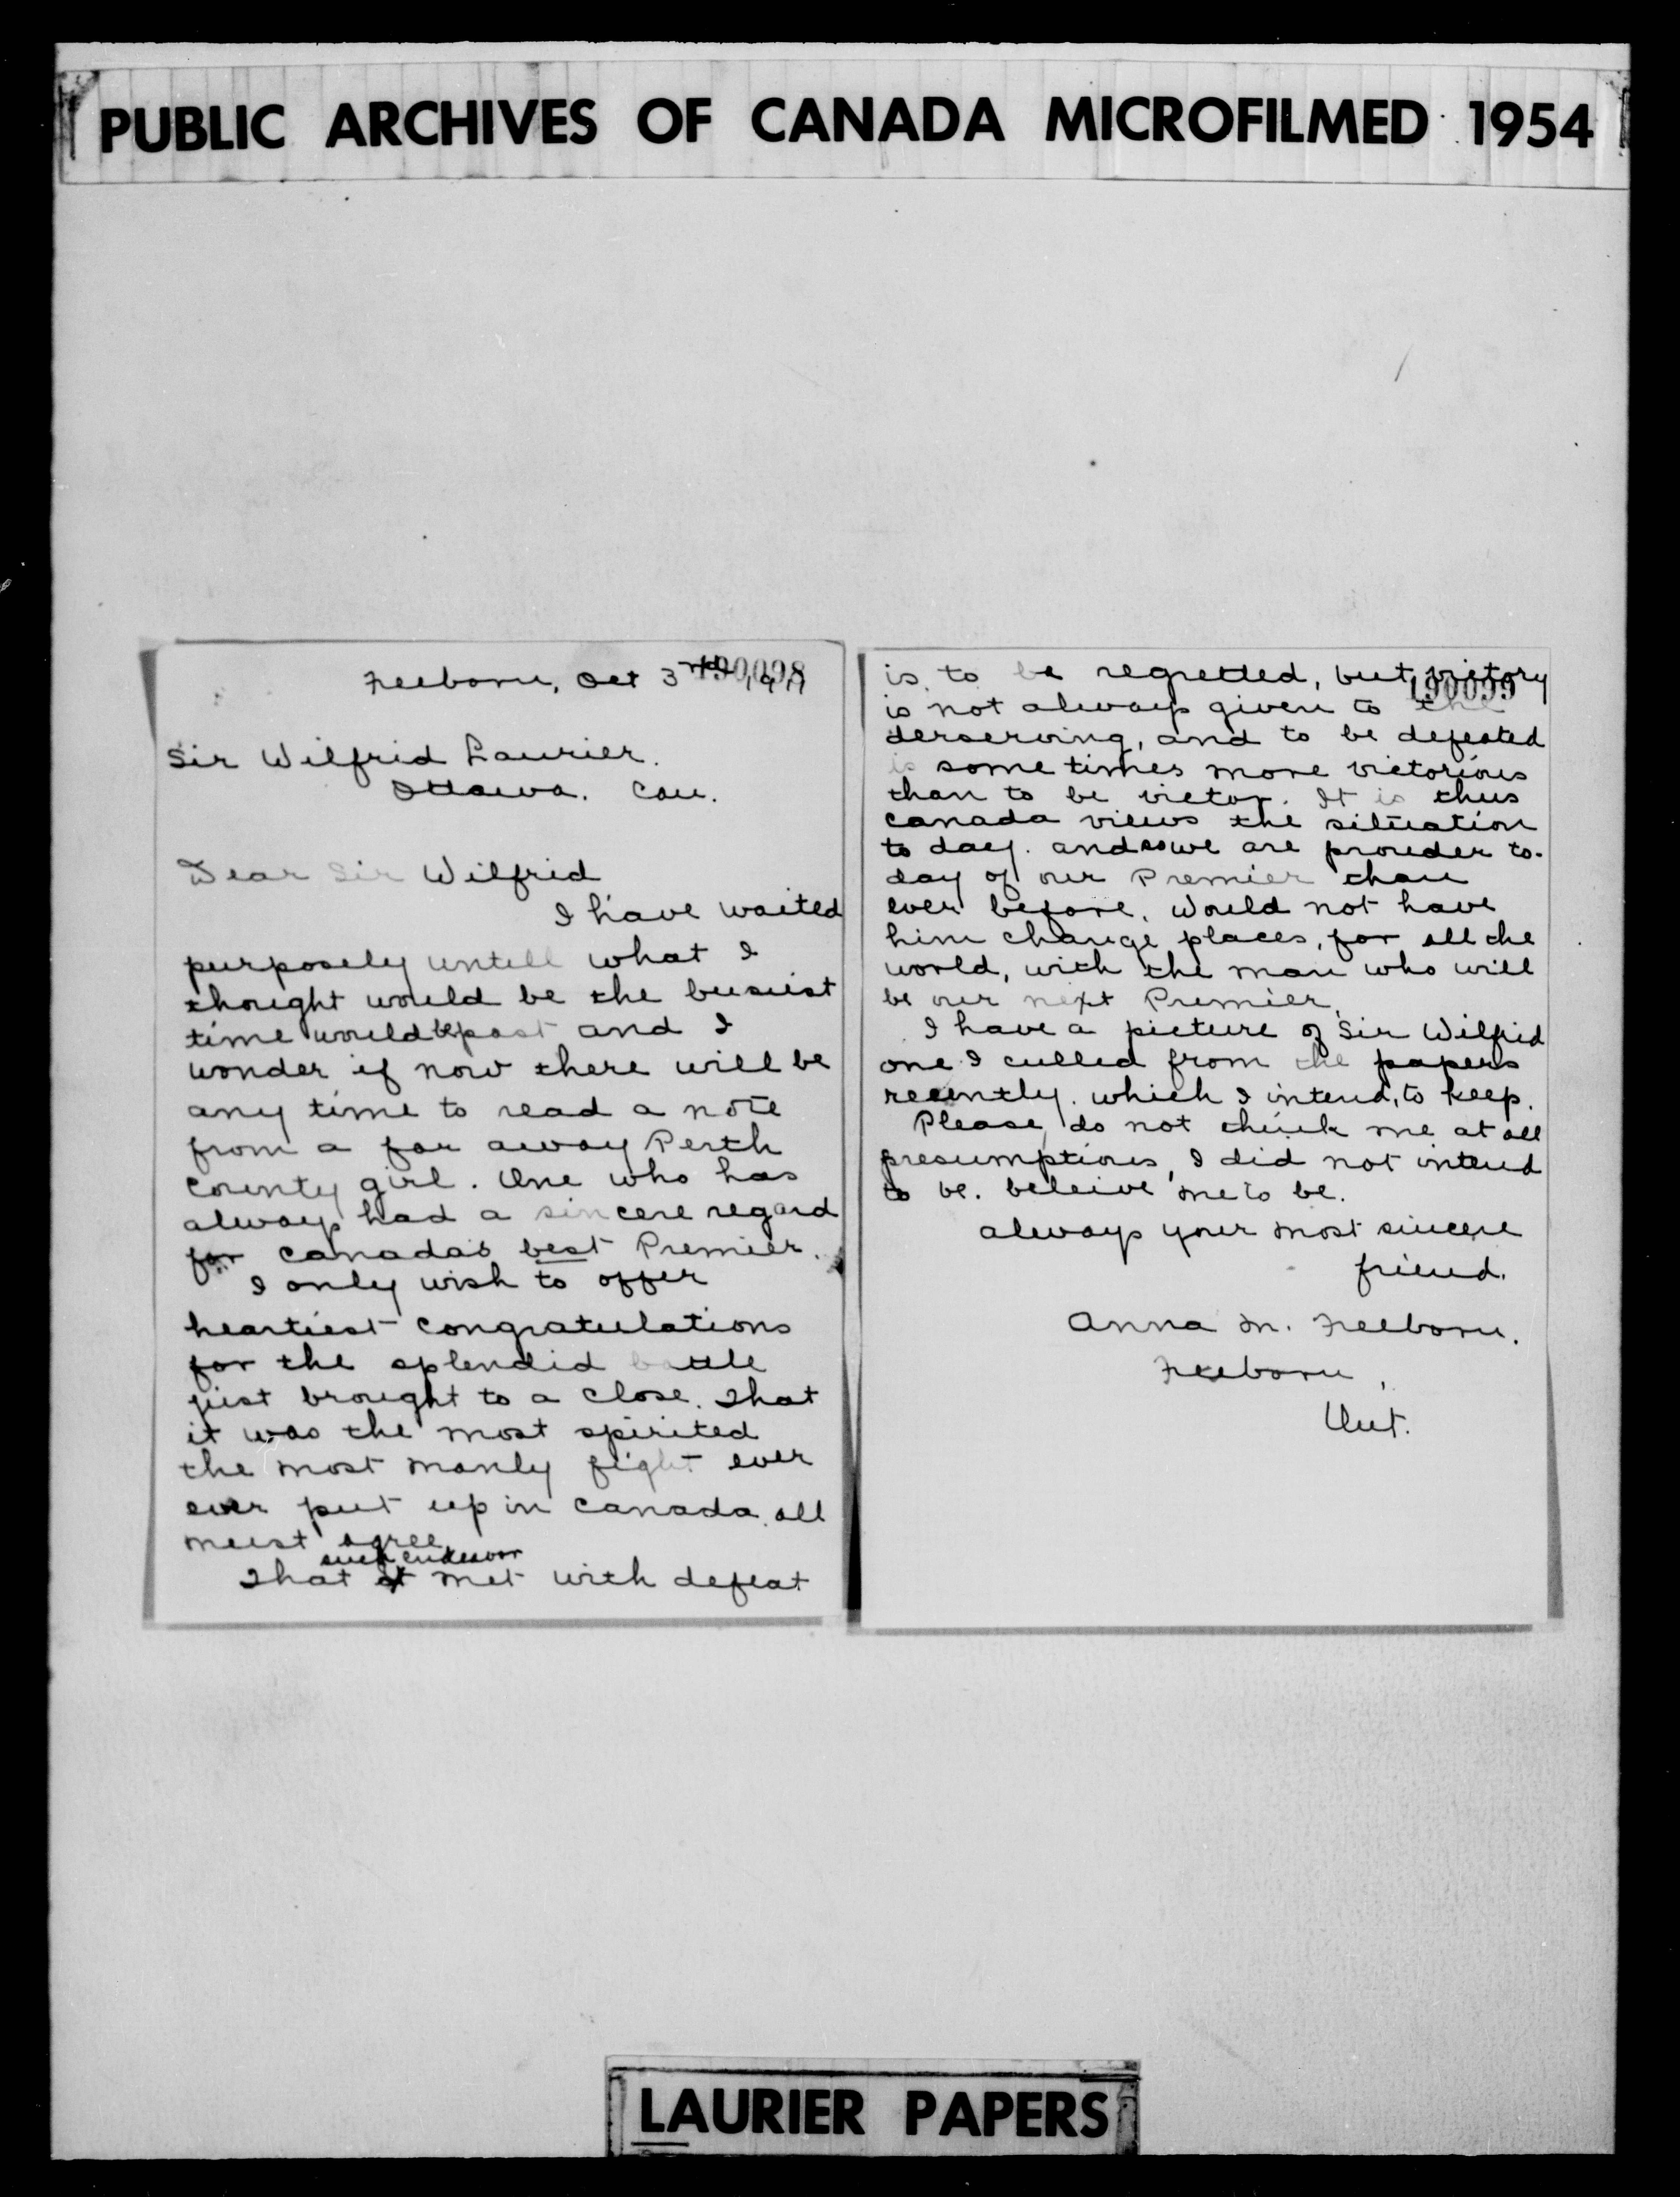 PUBLIC ARCHIVES OF CANADA MICROFILMED 1954
Freeborn, Oct 3rd 1911
190098
Sir Wilfrid Laurier.
Ottawa. Can.
Dear Sir Wilfrid
I have waited
purposely untill what I
thought would be the busiest
time would be past and I
wonder if now there will be
any time to read a note
from a far away Perth
County girl. One who has
always had a sincere regard
for Canada's best Premier.
I only wish to offer
heartiest congratulations
for the splendid battle
just brought to a close. That
it was the most spirited
the most manly fight ever
ever put up in Canada all
must agree
such endeavor
That it met with defeat
is to be regretted, but victory
190099
is not always given to the
derserving, and to be defeated
is some times more victorious
than to be victor. It is thus
Canada views the situation
to day. and so we are prouder to-
day of our Premier than
ever before. Would not have
him change places, for all the
world, with the man who will
be our next Premier.
I have a picture of Sir Wilfrid
one I culled from the papers
recently. which I intend, to keep.
Please, do not think me at all
presumptious, I did not intend
to be. beleive me to be.
always your most sincere
friend.
Anna M. Freeborn.
Freeborn,
Ont.
LAURIER PAPERS